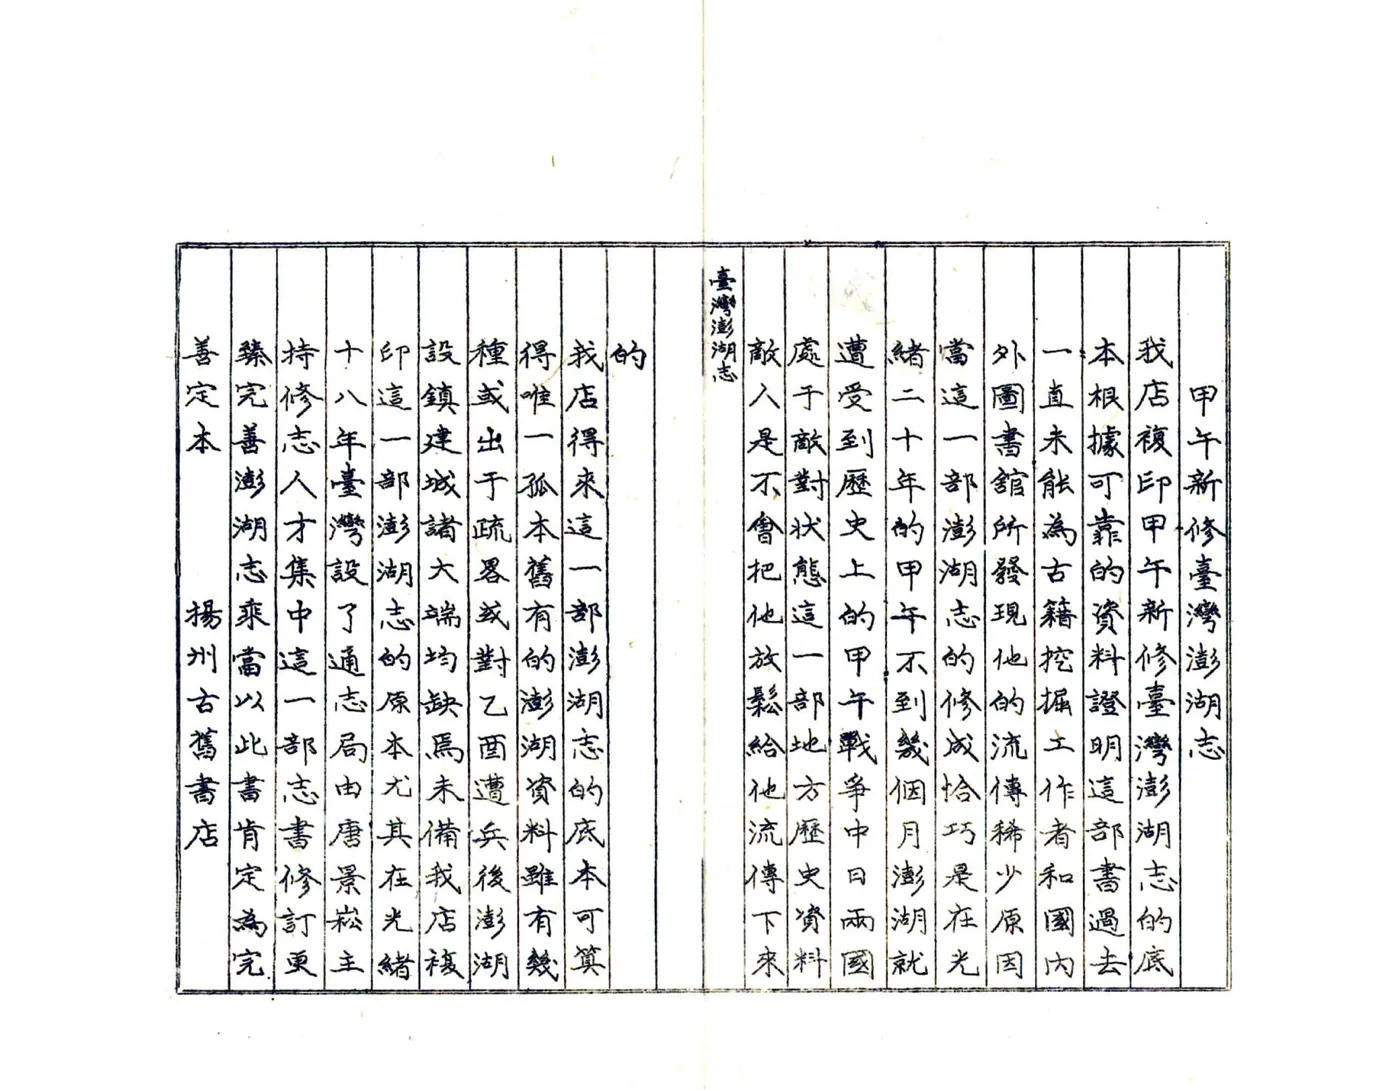 甲午新修臺灣澎湖志
我店複印甲午新修臺灣澎湖志的底
本根據可靠的資料證明這部書過去
一直未能為古籍挖掘工作者和國內
外圖書館所發現他的流傳稀少原因
當這一部澎湖志的修成恰巧是在光
緒二十年的甲午不到幾個月澎湖就
遭受到歷史上的甲午戰爭中日兩國
處于敵對狀態這一部地方歷史資料
敵人是不會把他放鬆給他流傳下來
臺灣澎湖志
的
我店得來這一部澎湖志的底本可算
得唯一孤本舊有的澎湖資料雖有幾
種或出于疏畧或對乙酉遭兵後澎湖
設鎮建城諸大端均缺焉未備我店複
印這一部澎湖志的原本尤其在光緒
十八年臺灣設了通志局由唐景崧主
持修志人才集中這一部志書修訂更
臻完善澎湖志乘當以此書肯定為完
善定本 揚州古舊書店